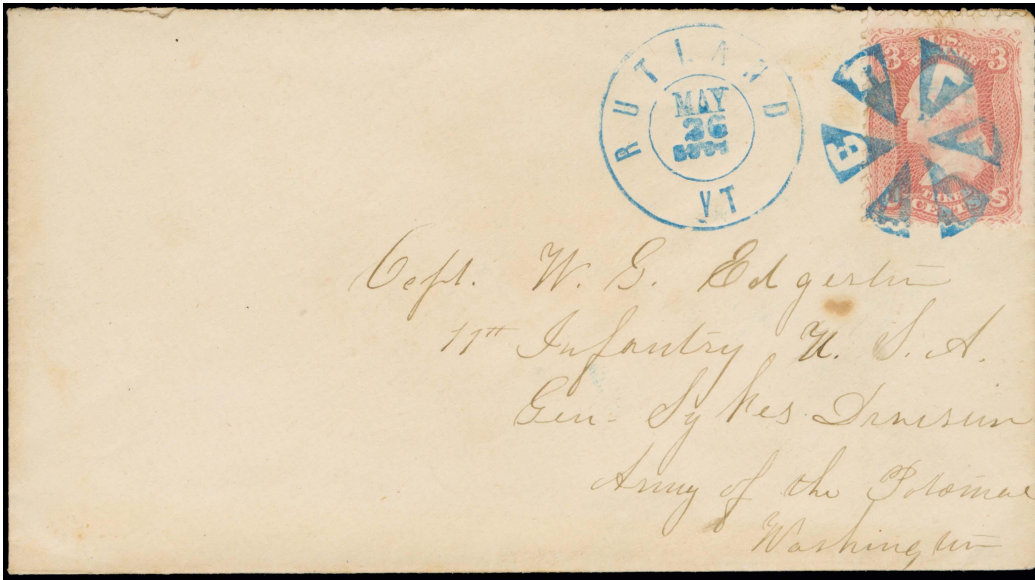 RUTLAND
MAY
26
VT
U.S.
POSTAGE
3 3
THREE
CENTS
Capt. W. G. Edgerton
11th Infantry U. S. A.
Gen. Sykes Division
Army of the Potomac
Washington